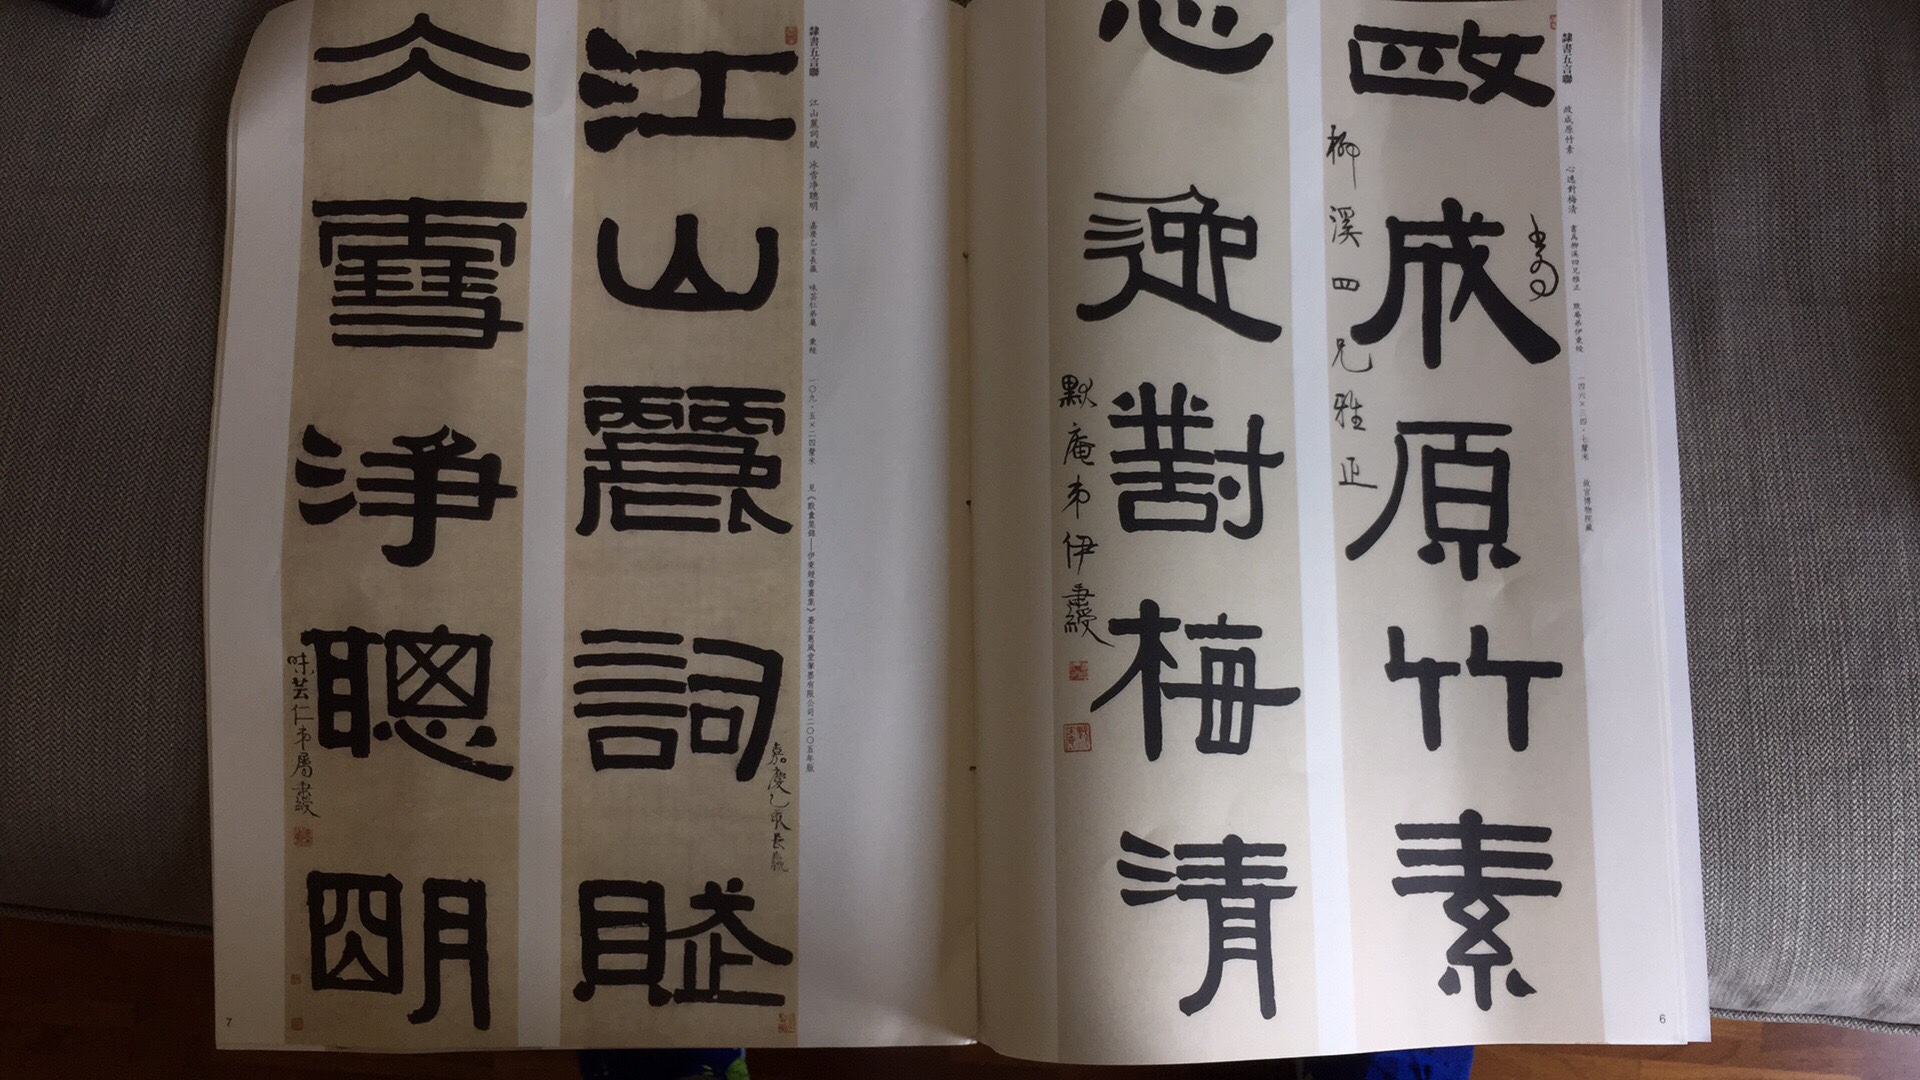 隸書五言聯 政成原竹素 心逸對梅清 書爲柳溪四兄雅正 默庵弟伊秉綬 一四六×三四·七釐米 故宮博物院藏
政成原竹素
書爲
柳溪四兄雅正
心迹對梅清
默庵弟伊秉綬
6
隸書五言聯 江山麗詞賦 冰雪净聰明 嘉慶乙亥長嬴 味芸仁弟屬 秉綬 一〇九·五×二四釐米 見《默盦集錦——伊秉綬書畫集》臺北蕙風堂筆墨有限公司二〇〇五年版
江山麗詞賦
嘉慶乙亥長嬴
仌雪净聰明
味芸仁弟屬秉綬
7